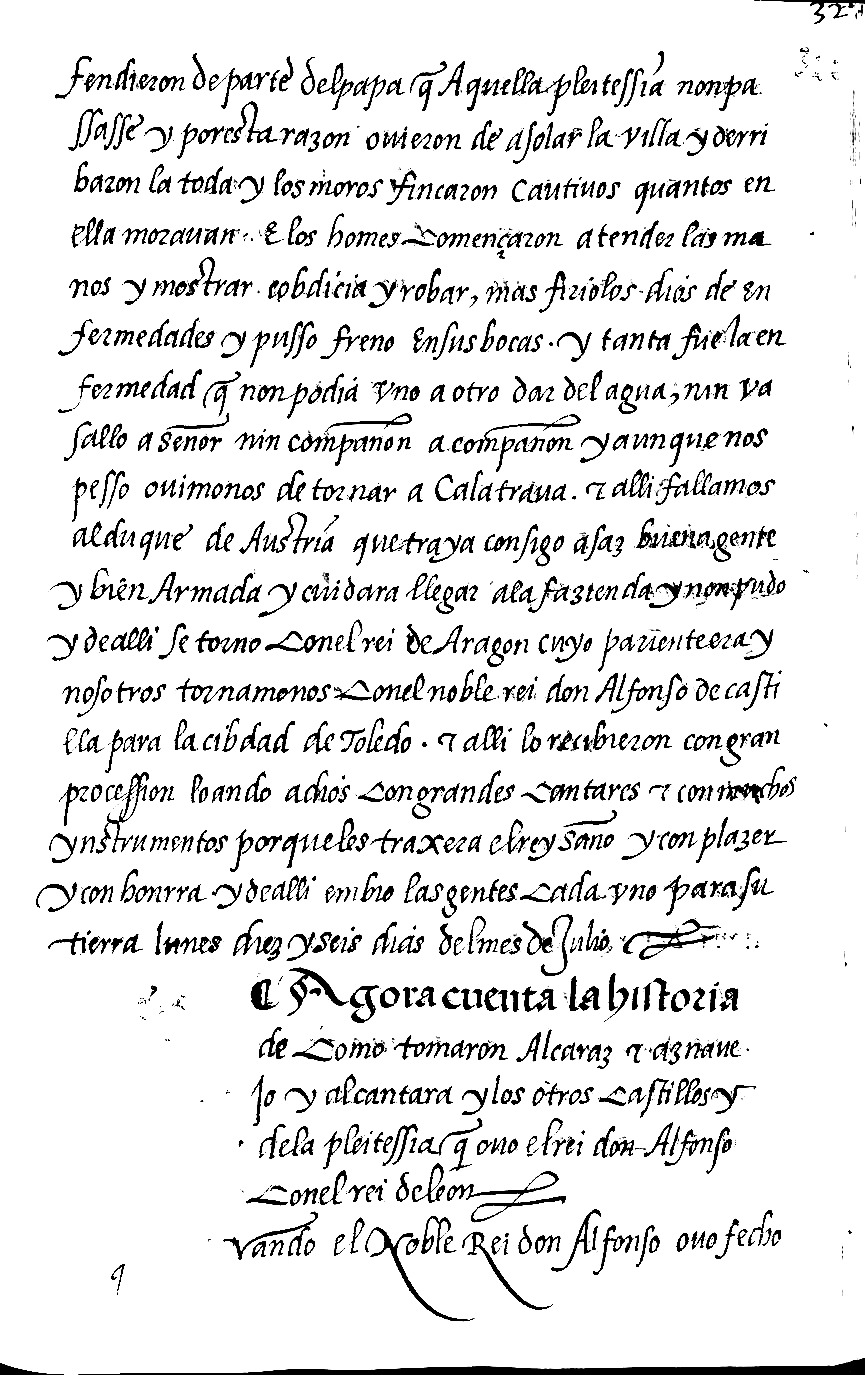 327
fendieron de parte del papa q̃ Aquella pleitessia non pa
ssasse y por esta razon ovieron de asolar la villa y derri
baron la toda y los moros fincaron Cautivos quantos en
ella moravan. E los homes Començaron a tender las ma
nos y mostrar cobdicia y robar, mas firiolos dios de en
fermedades y pusso freno en sus bocas. y tanta fue la en
fermedad q̃ non podia vno a otro dar del agua, nin va
sallo a señor nin compañon a compañon y aunque nos
pesso ovimonos de tornar a Calatrava. & alli fallamos
al duque de Austria que traya consigo asaz buena gente
y bien Armada y cuidara llegar a la fazienda y non pudo
y de alli se torno Con el rei de Aragon cuyo pariente era y
nosotros tornamonos Con el noble rei don Alfonso de casti
ella para la cibdad de Toledo. & alli lo recibieron con gran
procession loando a dios Con grandes Cantares & con muchos
ynstrumentos porque les traxera el rey sano y con plazer
y con honrra y de alli embio las gentes Cada vno para su
tierra lunes diez y seis dias del mes de Julio.
Agora cuenta la historia
de Como tomaron Alcaraz & aznave
Jo y alcantara y los otros Castillos y
de la pleitessia q̃ ovo el rei don Alfonso
Con el rei de leon
q vando el Noble Rei don Alfonso ovo fecho